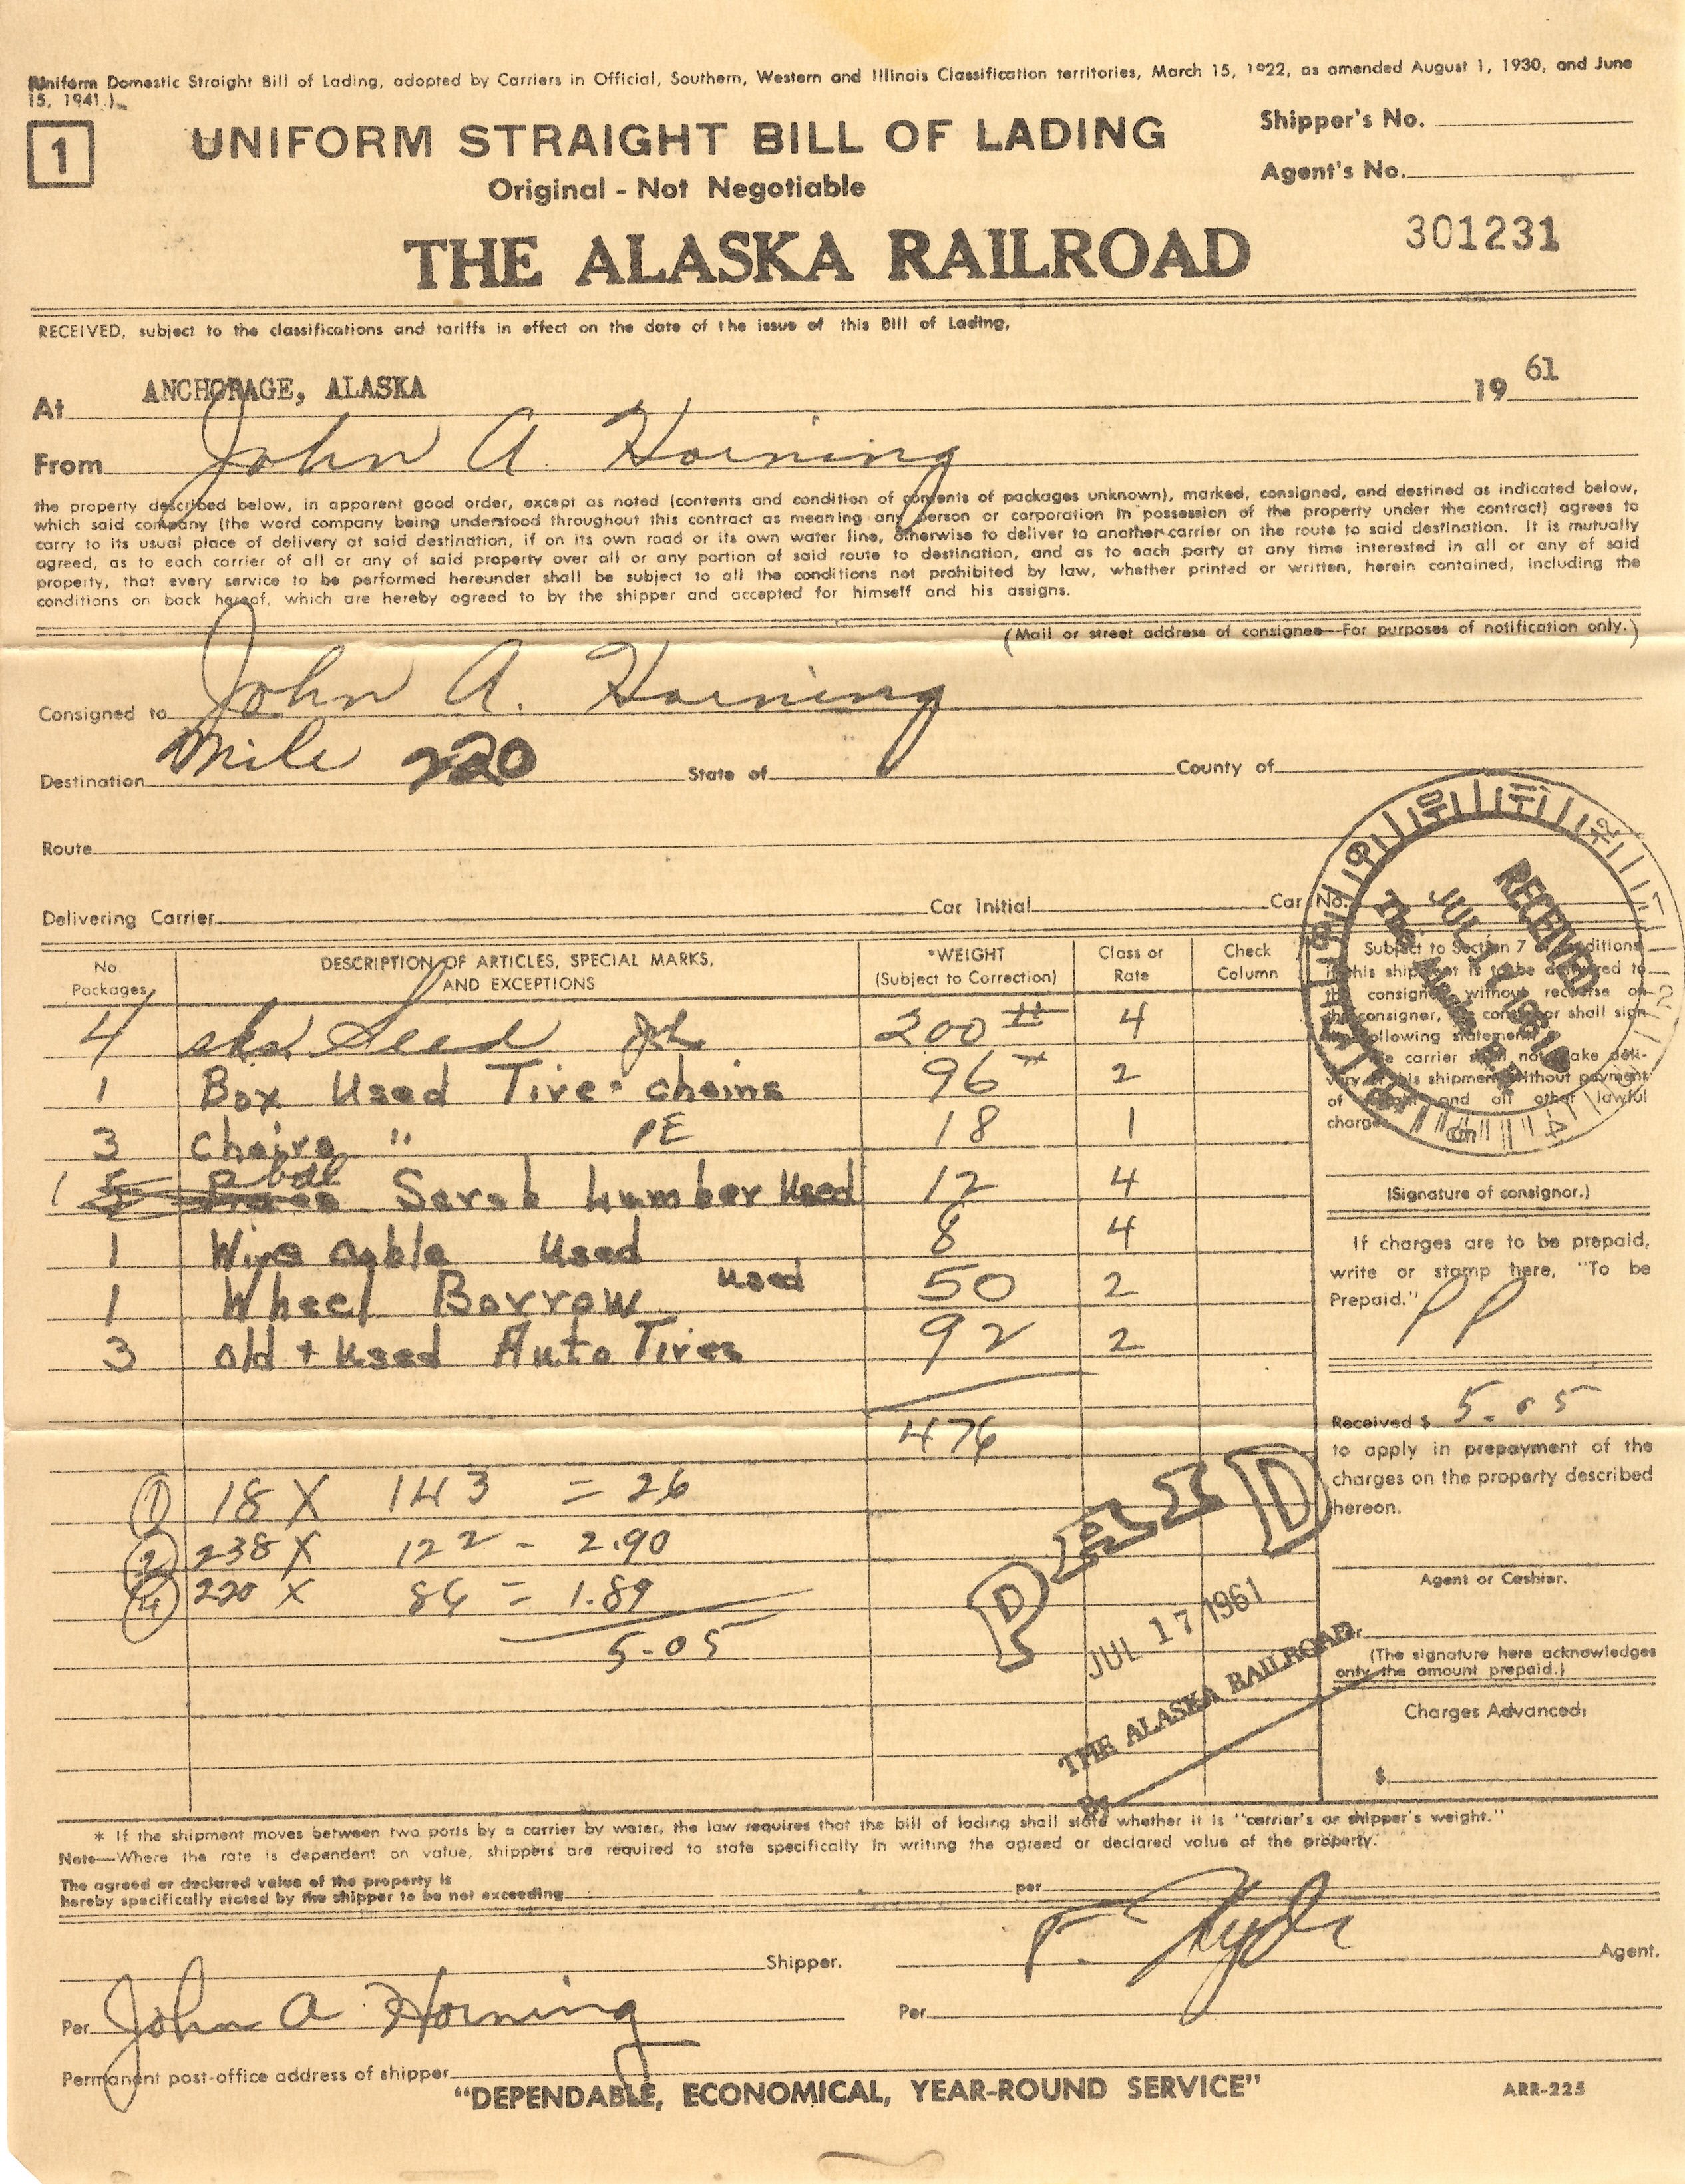 (Uniform Domestic Straight Bill of Lading, adopted by Carriers in Official, Southern, Western and Illinois Classification territories, March 15, 1922, as amended August 1, 1930, and June
15, 1941.)
1
UNIFORM STRAIGHT BILL OF LADING
Original - Not Negotiable
Shipper's No.
Agent's No.
301231
THE ALASKA RAILROAD
RECEIVED, subject to the classifications and tariffs in effect on the date of the issue of this Bill of Lading,
At ANCHORAGE, ALASKA 19 61
From John A. Horning
the property described below, in apparent good order, except as noted (contents and condition of contents of packages unknown), marked, consigned, and destined as indicated below,
which said company (the word company being understood throughout this contract as meaning any person or corporation in possession of the property under the contract) agrees to
carry to its usual place of delivery at said destination, if on its own road or its own water line, otherwise to deliver to another carrier on the route to said destination. It is mutually
agreed, as to each carrier of all or any of said property over all or any portion of said route to destination, and as to each party at any time interested in all or any of said
property, that every service to be performed hereunder shall be subject to all the conditions not prohibited by law, whether printed or written, herein contained, including the
conditions on back hereof, which are hereby agreed to by the shipper and accepted for himself and his assigns.
(Mail or street address of consignee—For purposes of notification only.)
Consigned to John A. Horning
Destination Mile 220 State of County of
Route
Delivering Carrier Car Initial Car No.
No. Packages DESCRIPTION OF ARTICLES, SPECIAL MARKS, AND EXCEPTIONS *WEIGHT (Subject to Correction) Class or Rate Check Column
4 sks. Seed 200 # 4
1 Box Used Tire chains 96 2
3 Chairs " PE 18 1
1 bdl Scrab Lumber Used 12 4
1 Wire cable Used 8 4
1 Wheel Borrow used 50 2
3 old + used Auto Tires 92 2
476
1 18 X 143 = 26
2 238 X 122 - 2.90
4 220 X 86 = 1.89
5.05
RECEIVED
JUL 1961
The Alaska R.R.
Subject to Section 7 of conditions
if this shipment is to be delivered to
the consignee without recourse on
the consignor, the consignor shall sign
the following statement:
The carrier shall not make deli-
very of this shipment without payment
of freight and all other lawful
charges.
(Signature of consignor.)
If charges are to be prepaid,
write or stamp here, "To be
Prepaid."
PP
Received $ 5.05
to apply in prepayment of the
charges on the property described
hereon.
Agent or Cashier.
Per
(The signature here acknowledges
only the amount prepaid.)
Charges Advanced:
$
PAID
JUL 17 1961
THE ALASKA RAILROAD
By
* If the shipment moves between two ports by a carrier by water, the law requires that the bill of lading shall state whether it is "carrier's or shipper's weight."
Note—Where the rate is dependent on value, shippers are required to state specifically in writing the agreed or declared value of the property.
The agreed or declared value of the property is
hereby specifically stated by the shipper to be not exceeding per
Shipper. Agent.
Per John A. Horning Per
Permanent post-office address of shipper
"DEPENDABLE, ECONOMICAL, YEAR-ROUND SERVICE"
ARR-225